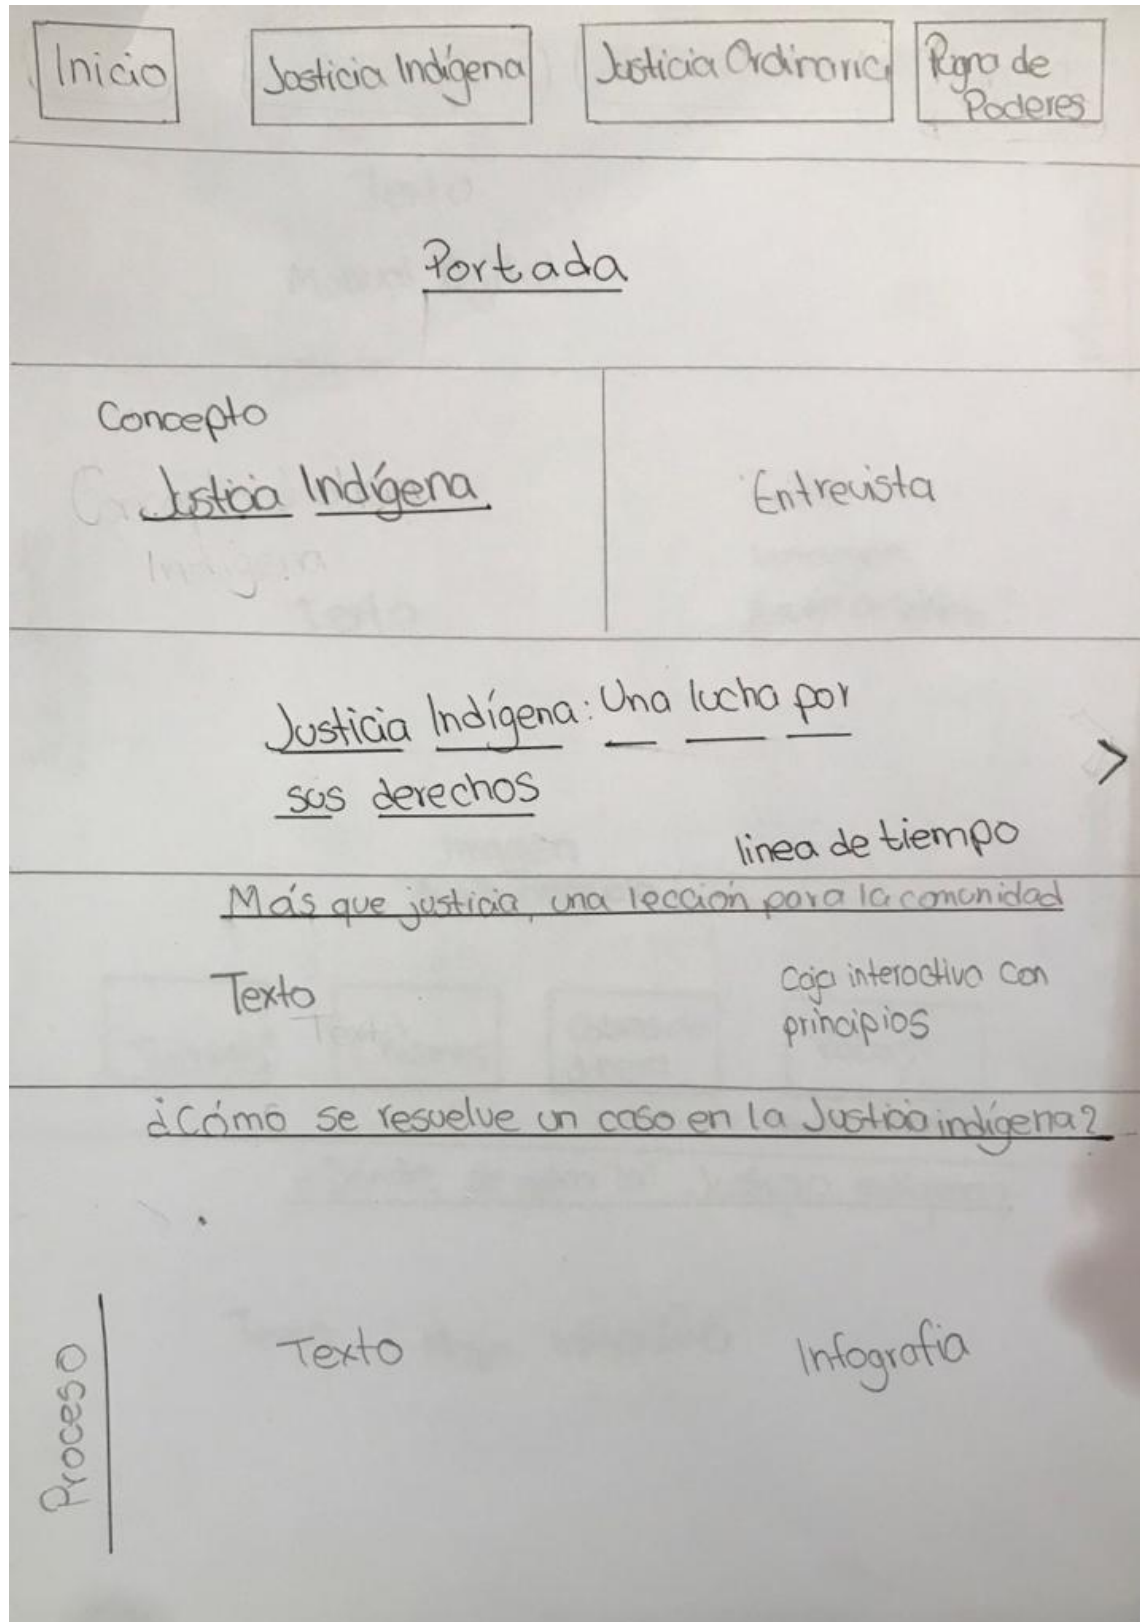 Inicio
Justicia Indígena
Justicia Ordinaria
Pugna de
Poderes
Portada
Concepto
Justicia Indígena
Entrevista
Justicia Indígena: Una lucha por
sus derechos
>
linea de tiempo
Más que justicia, una lección para la comunidad
Texto
Caja interactiva con
principios
¿Cómo se resuelve un caso en la Justicia indígena?
Proceso
Texto
Infografia